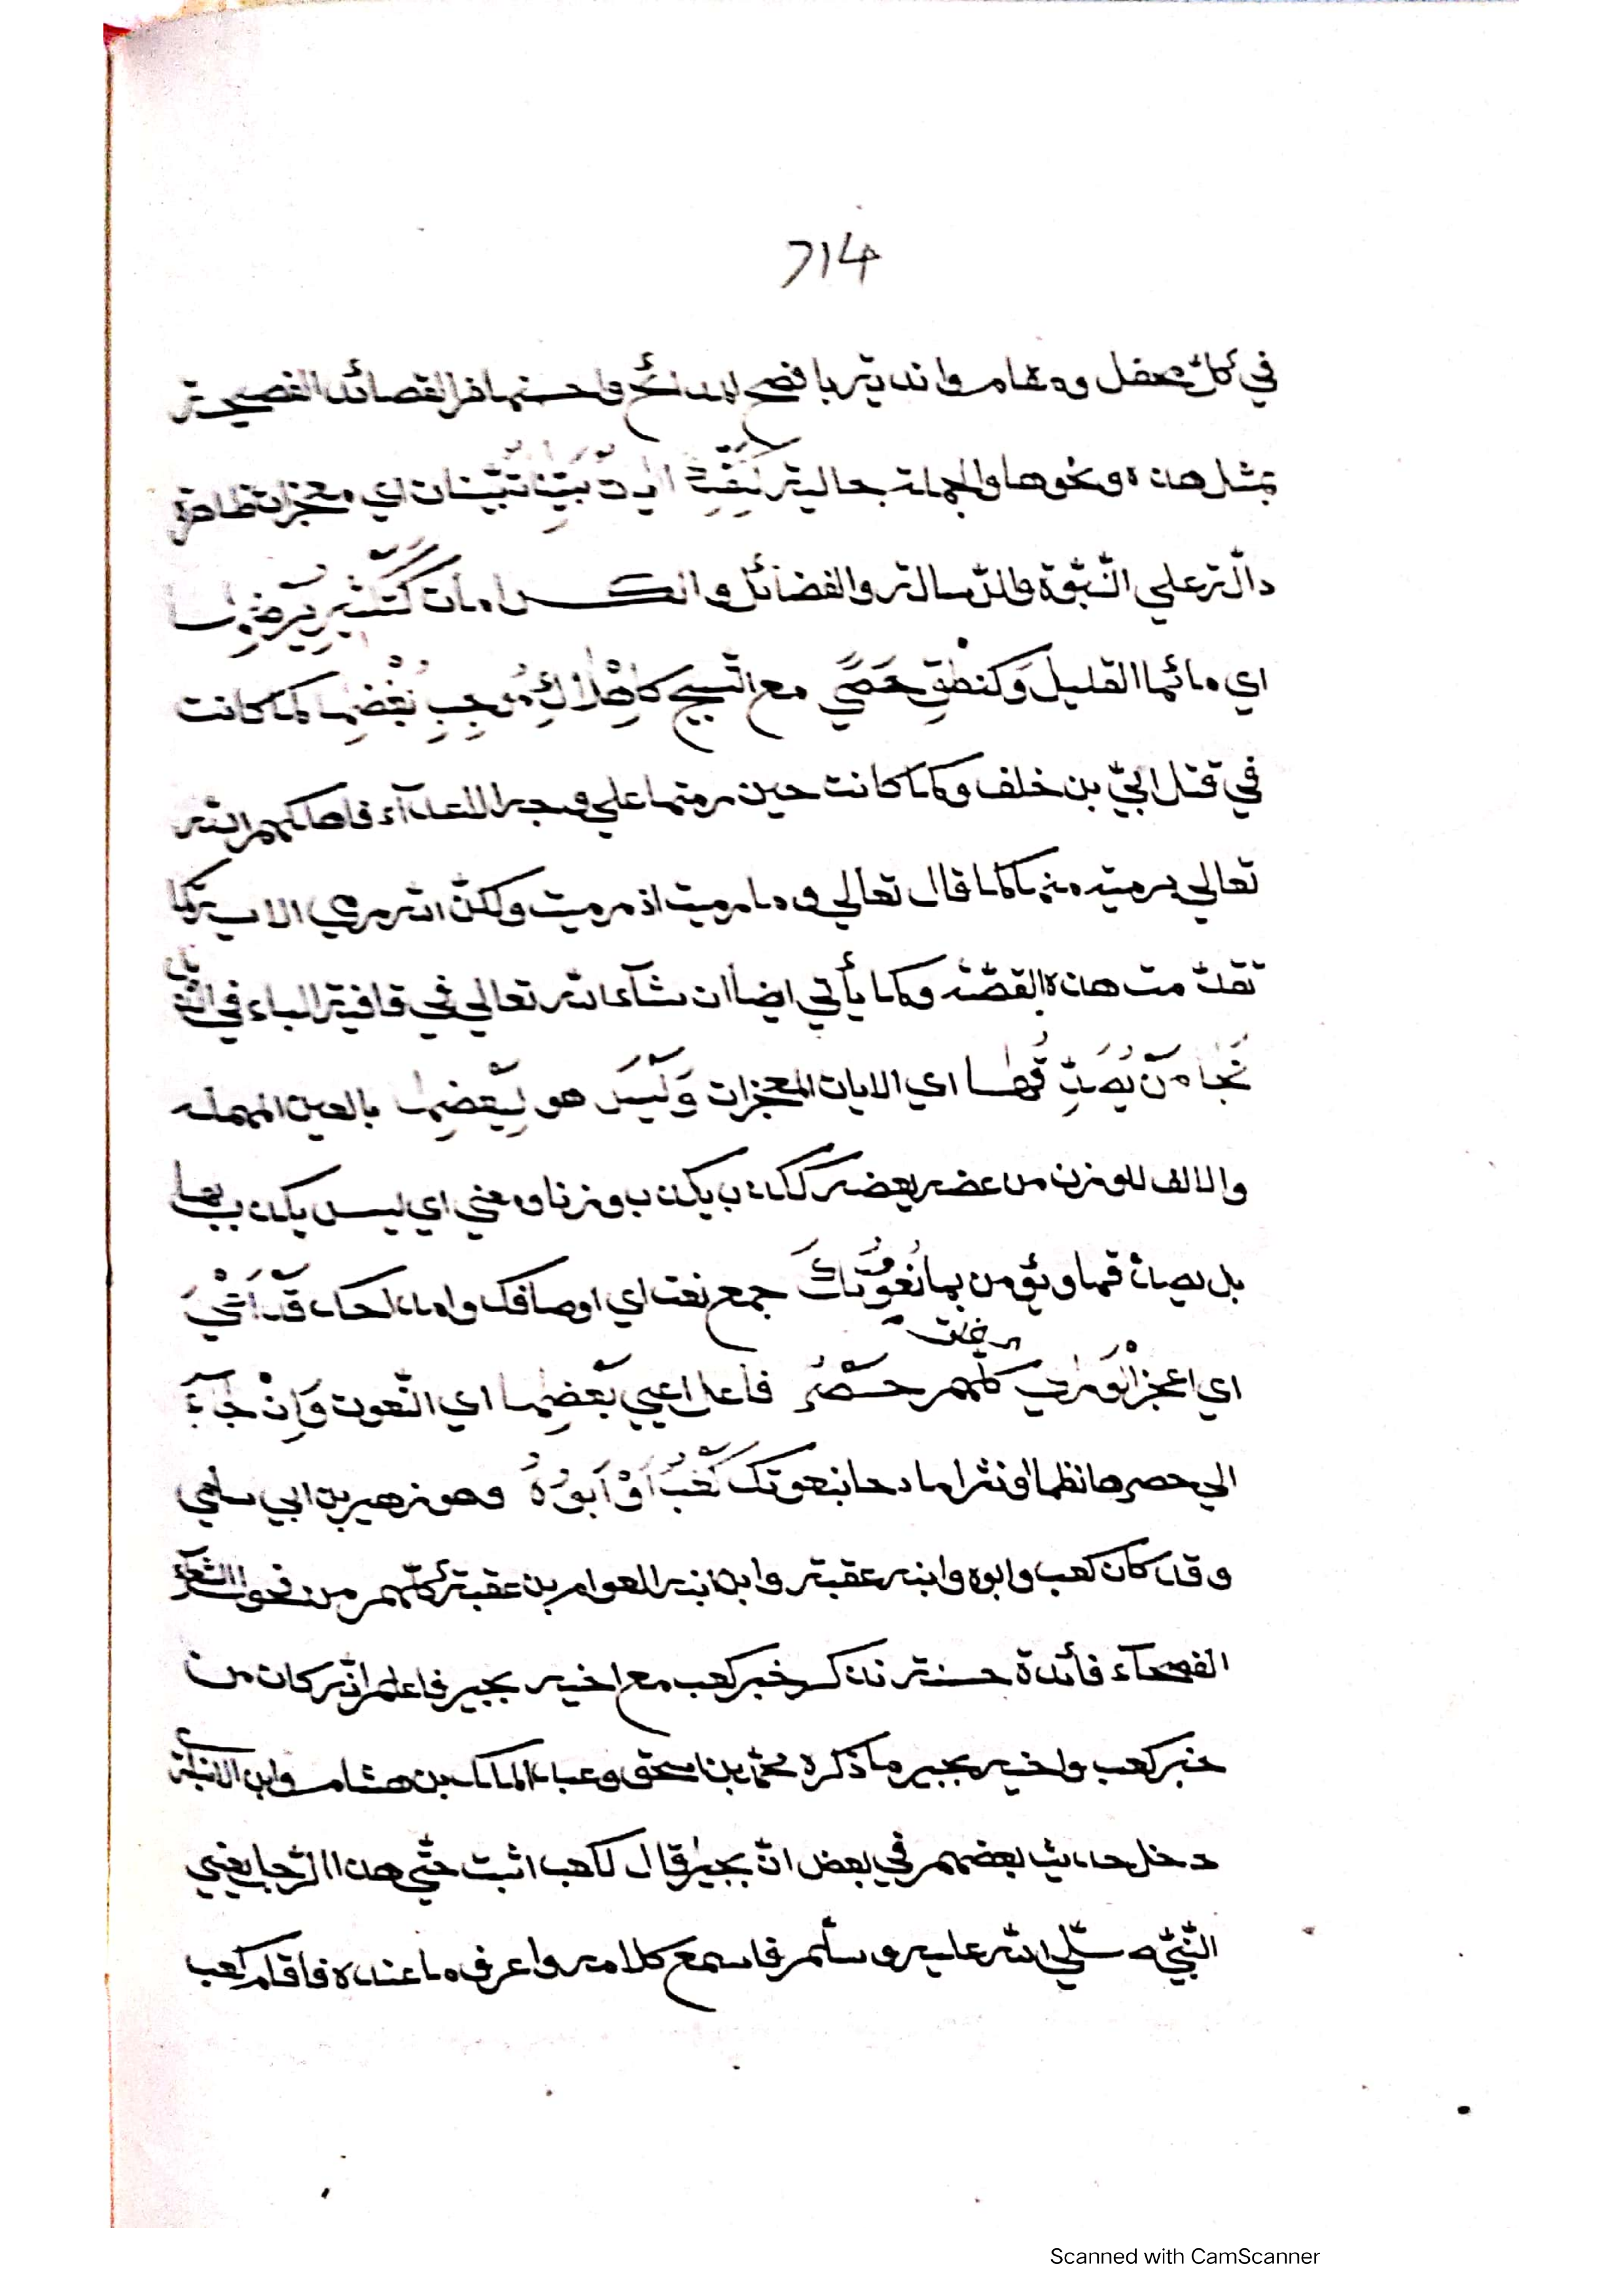 714
في كلّ محفل ومقام واندية بافصح المدائح واحسنها في القصائد الفصيحة
بمثل هذه ونحوها والجملة حالية اي معجزات ظاهرة
دالّة علي النّبوّة والرّسالة والفضائل والكرامات كَتَكْثِيرِ بِئْرِضِها
اي مائها القليل وَكنطقِ حَصًي مع التّسبيح بُغْضِها كما كانت
في قتل ابيّ بن خلف وكما كانت حين رمتها علي وجه الاعدآء فاهلكهم الله
تعالي برميته منها كما قال تعالي وما رميت اذ رميت ولكنّ الله رمي الاية كما
تقدّمت هذه القصّة وكما يأتي ايضا ان شآء الله تعالي في قافية الباء في
نَجَا مَنْ يُصَدِّقُها اي الايات المعجزات وَلَيْسَ هو لِيَعْضَهَا بالعين المهملة
والالف للوزن من عضه يعضه ككذب يكذب وزنا ومعني اي ليس يكذب بها
بل يصدّقها ويؤمن بها نُعُوتُكَ جمع نعت اي اوصافك وامداحك قَدْ اَعْيَتْ
رغبت
اي اعجز الْوَرٰي كلّهم حَصْرُ فاعل اعيي بَعْضِها اي النّعوت وَاِنْ جَآءَ
الي حصرها نظما او نثرا مادحا بنعوتك كَعْبٌ اَوْ اَبُوْهُ وهو زهير بن ابي سلمي
وقد كان كعب وابوه وابنه عقبة وابن ابنه العوام بن عقبة كلّهم من فحول الشعرآء
الفصحآء فائدة حسنة نذكر خبر كعب مع اخيه بجير فاعلم انّه كان من
خبر كعب واخيه بجير ما ذكره محمّد بن اسحق وعبد الملك بن هشام وابن الانباري
دخل حديث بعضهم في بعض انّ بجيرا قال لكعب اثبت حتّي هذا الرّجل يعني
النّبيّ صلّي الله عليه وسلّم فاسمع كلامه واعرف ما عنده فاقام كعب
Scanned with CamScanner